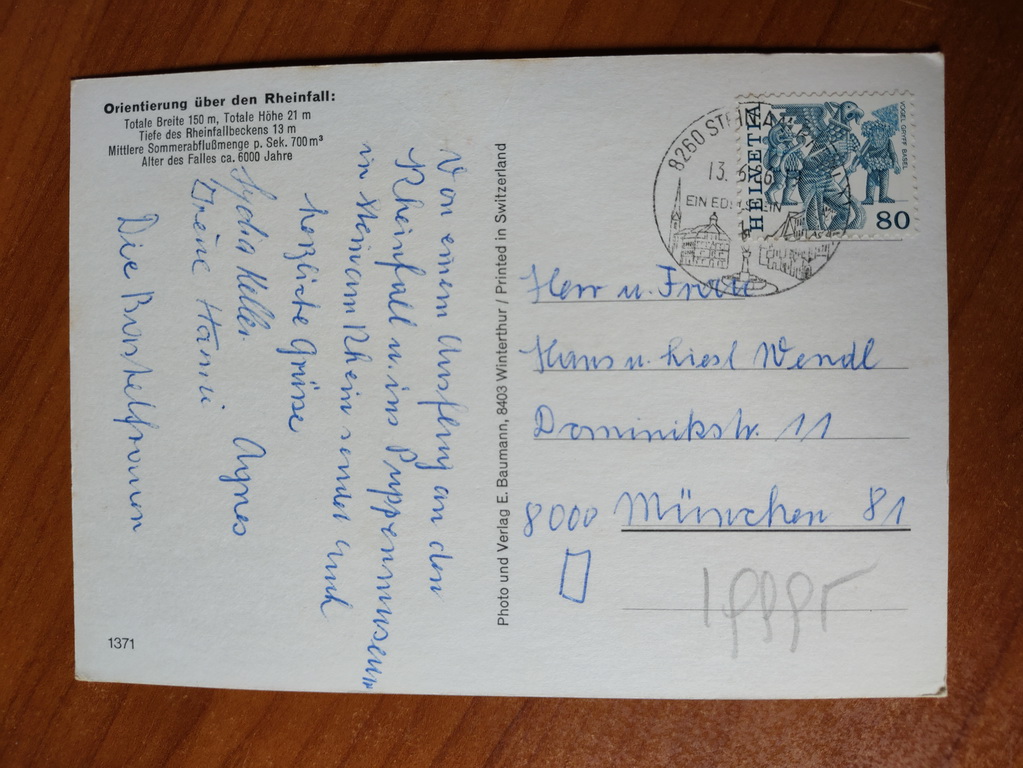 Orientierung über den Rheinfall:
Totale Breite 150 m, Totale Höhe 21 m
Tiefe des Rheinfallbeckens 13 m
Mittlere Sommerabflußmenge p. Sek. 700 m³
Alter des Falles ca. 6000 Jahre
Von einem Ausflug an den
Rheinfall u. ins Puppenmuseum
in Stein am Rhein sendet Euch
herzliche Grüsse
Lydia Keller Agnes
Irène Hanni
Die
1371
Photo und Verlag E. Baumann, 8403 Winterthur / Printed in Switzerland
8260 STEIN AM
13.
EIN
HELVETIA
VOGEL GRYFF BASEL
80
Herr u. Frau
Hans u. Liesl Wendl
Dominikstr. 11
8000 München 81